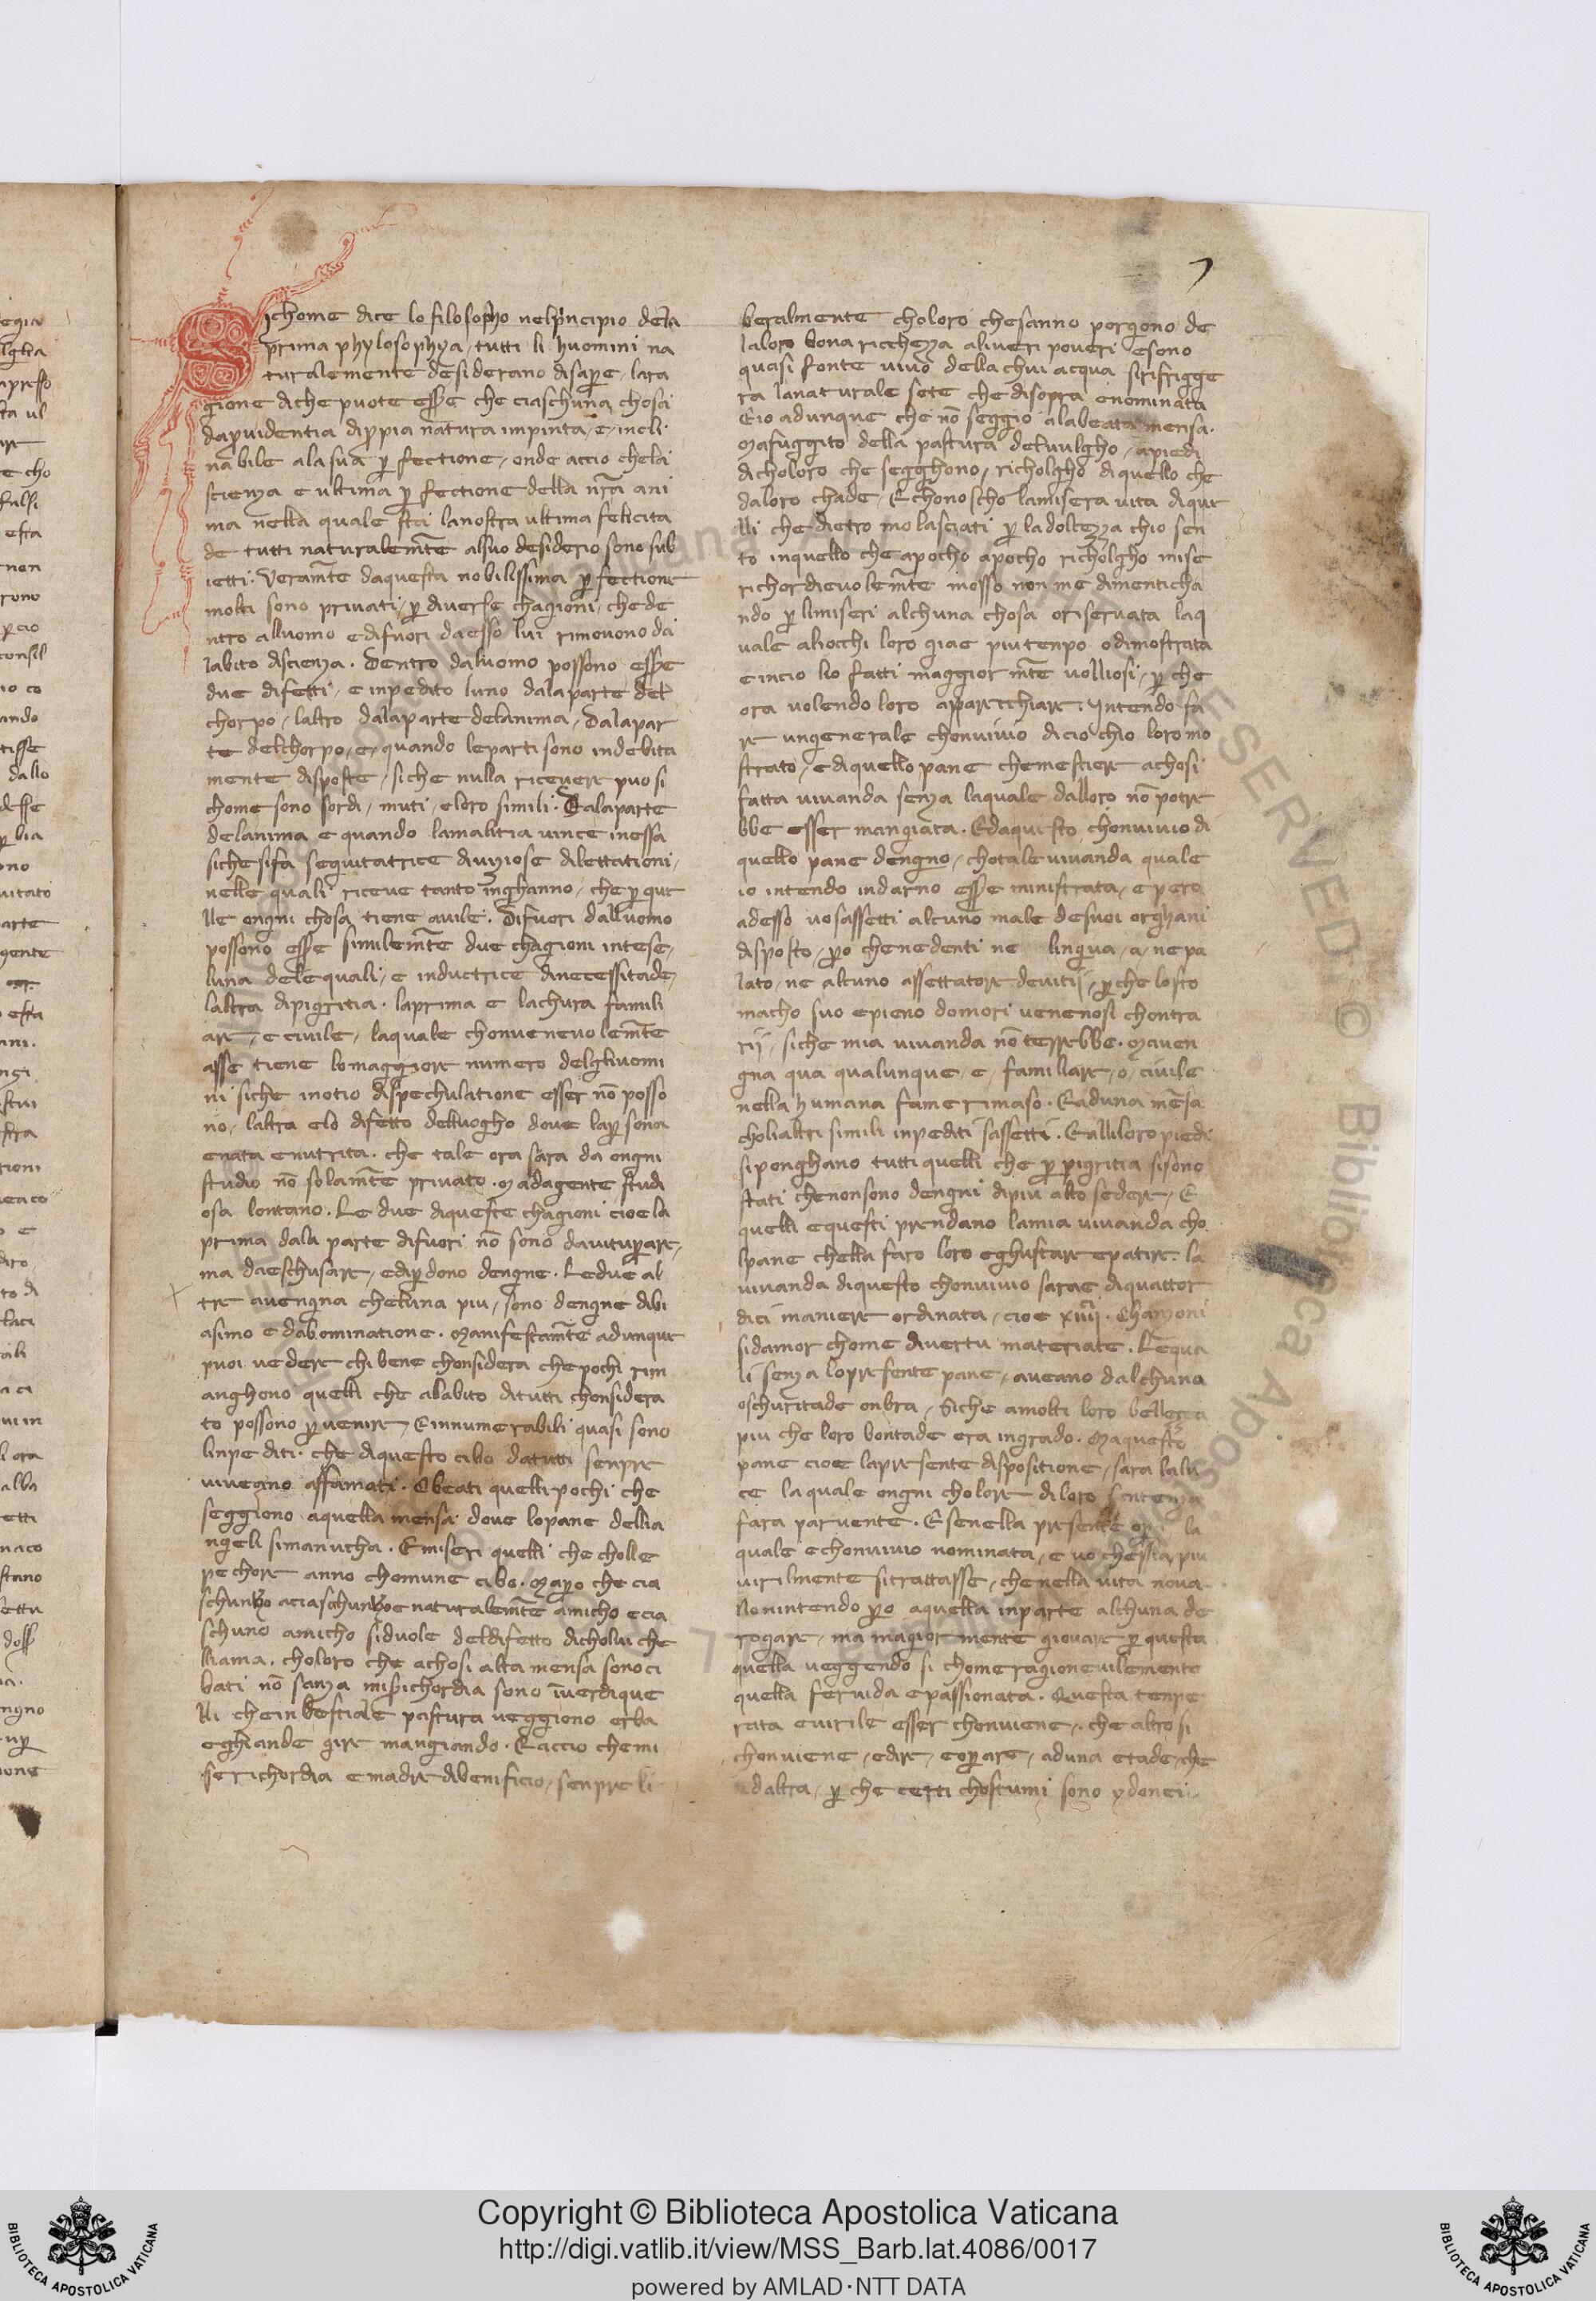 7
Sichome dice lo filosopho nelprincipio della
prima phylosophya, tutti li huomini na
turalemente desiderano disap̱e, lara
gione diche puote esse̱ che ciaschuna chosa
dap̱uidentia dip̱pia natura impinta, e, incli
nabile alasua p̱fectione, onde accio chela
scienza e ultima p̱fectione della nr̄a ani
ma nella quale sta lanostra ultima felicita
de tutti naturalem̄te alsuo desiderio sono sub
ietti. Veram̄te daquesta nobilissima p̱fectione
molti sono priuati, p̱ diuerse chagioni, chede
ntro alluomo edifuori daesso lui rimouono da
labito discienza. Dentro daluomo possono esse̱
due difetti, e inpedito luno dalaparte del
chorpo, laltro dalaparte delanima, Dalapar
te delchorpo, e, quando leparti sono indebita
mente disposte, siche nulla riceuere puo si
chome sono sordi, muti, eloro simili. Dalaparte
delanima e quando lamalitia uince inessa
sichesifa seguitatrice diuiziose dilettationi,
nelle quali riceue tanto inghanno, che p̱ que
lle ongni chosa tiene auile. Difuori dalluomo
possono esse̱ similem̄te due chagioni intese,
luna delequali, e inductrice dinecessitade,
laltra dipigritia. laprima e lachura famili
are, e ciuile, laquale chonueneuolem̄te
asse tiene lomaggiore numero deglhuomi
ni siche inotio dispechulatione esser nō posso
no, laltra elo difetto delluogho doue lap̱sona
enata enutrita. che tale ora sara da ongni
studio nō solam̄te priuato. Madagente studi
osa lontano. Le due diqueste chagioni cioe la
prima dala parte difuori nō sono dauitup̱are,
ma daeschusare, edip̱dono dengne. Ledue al
tre auengna cheluna piu, sono dengne dibi
asimo e dabominatione. Manifestam̄te adunque
puoi uedere chi bene chonsidera chepochi rim
anghono quelli che alabito datutti chonsidera
to possono p̱uenire, Einnumerabili quasi sono
linpediti. che diquesto cibo datutti senpre
uiueano affamati. Obeati quelli pochi che
seggiono aquella mensa doue lopane dellia
ngeli simanucha. Emiseri quelli che cholle
pechore anno chomune cibo. Map̱o che cia
schuno aciaschuno e naturalem̄te amicho ecia
schuno amicho siduole deldifetto dicholui che
lliama. choloro che achosi alta mensa sonoci
bati nō sanza misichordia sono inuerdique
lli cheinbestiale pastura ueggiono erba
eghiande gire mangiando. Eaccio chemi
serichordia emadre dibenificio, senpre li
beralmente choloro chesanno porgono de
laloro bona richezza aliueri poueri esono
quasi fonte uiuo della chui acqua sirifrigge
ra lanaturale sete che disopra enominata
Eio adunque che nō seggio alabeata mensa.
Mafuggito della pastura deluulgho, apiedi
dicholoro che segghono, richolgho diquello che
daloro chade, Echonoscho lamisera uita dique
lli che dietro mo lasciati p̱ ladolcezza chio sen
to inquello che apocho apocho richolgho mise
richordieuolem̄te mosso non me dimenticha
ndo p̱ limiseri alchuna chosa oriseruata laq
uale aliocchi loro giae piu tenpo odimostrata
eincio lio fatti maggior m̄te uolliosi, p̱ che
ora uolendo loro apparecchiare. Intendo fa
re ungenerale chonuiuio dicio chio loromo
strato, ediquello pane chemestiere achosi
fatta uiuanda senza laquale dalloro nō potre
bbe esser mangiata. Edaquesto chonuiuio di
quello pane dengno, chotale uiuanda quale
io intendo indarno esse̱ ministrata, e pero
adesso uosassetti alcuno male desuoi orghani
disposto, p̱o chenedenti ne lingua, a, nepa
lato, ne alcuno assettatore deuitij, p̱che losto
macho suo epieno domori uenenosi chontra
rij, siche mia uiuanda nō terrebbe. Mauen
gna qua qualunque, e, familiare, o, ciuile
nella humana fame rimaso. Eaduna mēsa
choliialtri simili inpediti sassetti. Ealliloro piedi
siponghano tutti quelli che p̱ pigritia sisono
stati chenonsono dengni dipiu alto sedere, E
quelli equesti prendano lamia uiuanda cho
lpane chella faro loro eghustare epatire. la
uiuanda diquesto chonuiuio sarae diquattor
dici maniere ordinata, cioe xiiij. Chanzoni
sidamor chome diuertu materiate. Lequa
li senza lopresente pane, aueano dalchuna
oschuritade onbra, Siche amolti loro bellezza
piu che loro bontade era ingrado. Maquesto
pane cioe lapresente dispositione, sara lalu
ce laquale ongni cholore diloro sentenza
fara paruente. Esenella presente la
quale echonuiuio nominata, e uo chessia piu
uirilmente sitrattasse, chenella uita noua.
Nonintendo p̱o aquella inparte alchuna de
rogare, ma magiormente giouare p̱ questa
quella ueggendo si chomeragioneuilemente
quella feruida epassionata. Questa tenpe
rata euirile esser chonuiene. che altro si
chonuiene, edire, eop̱are, aduna etade, che
adaltra, p̱ che certi chostumi sono ydonei
Copyright © Biblioteca Apostolica Vaticana
http://digi.vatlib.it/view/MSS_Barb.lat.4086/0017
powered by AMLAD·NTT DATA
BIBLIOTECA APOSTOLICA VATICANA
BIBLIOTECA APOSTOLICA VATICANA